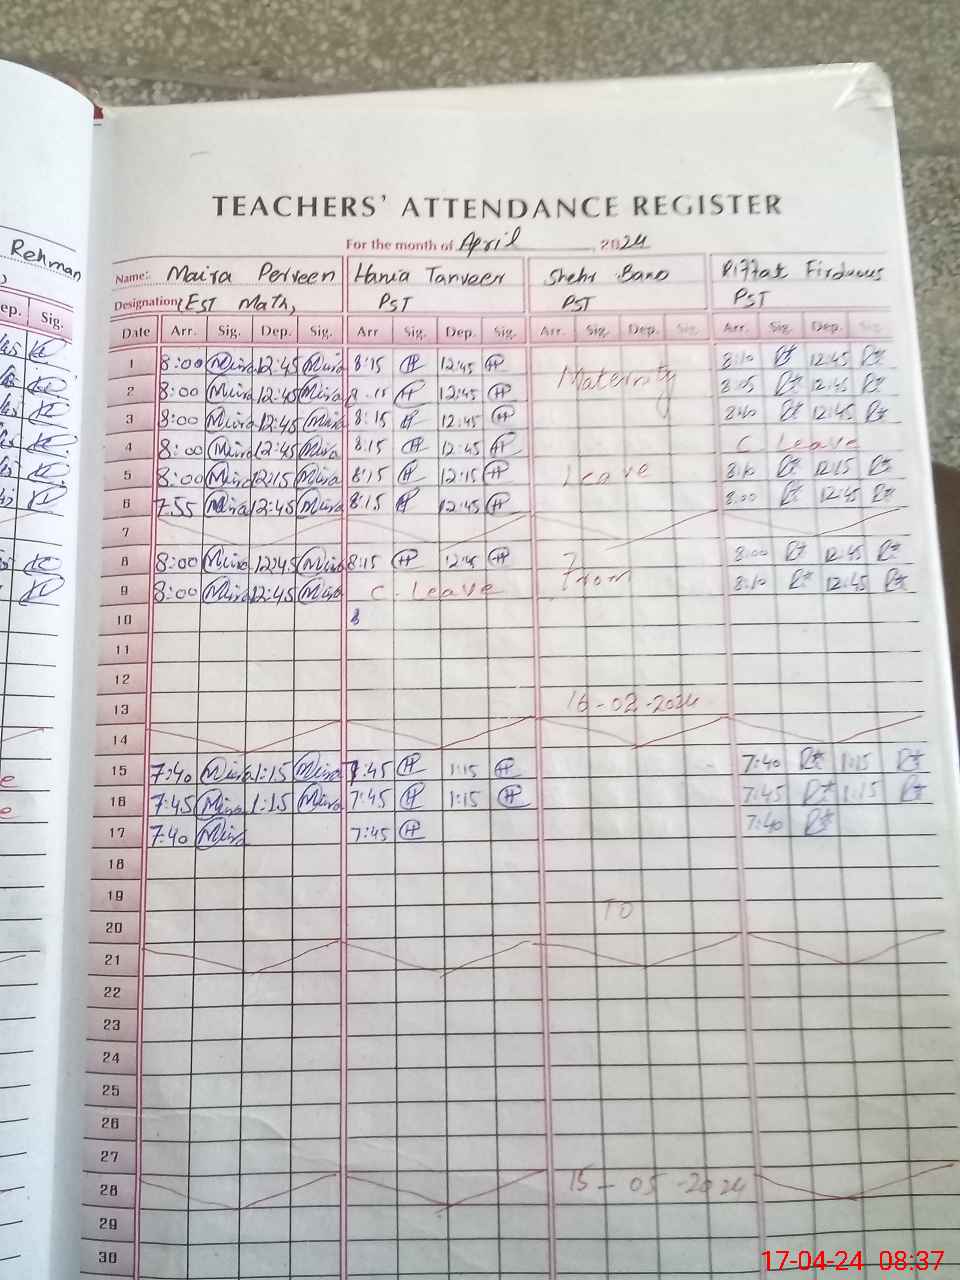 Rehman
ep. Sig.
TEACHERS' ATTENDANCE REGISTER
For the month of April 2024
Name: Maira Perveen Hania Tanveer Shehr Bano Riffat Firdous
Designation (EST Math) PST PST PST
Date Arr. Sig. Dep. Sig. Arr Sig. Dep. Sig. Arr. Sig. Dep. Sig. Arr. Sig. Dep. Sig.
1 8:00 Mira 12:45 Mira 8:15 H 12:45 H Maternity 8:10 12:45
2 8:00 Mira 12:45 Mira H 12:45 H 8:05 12:45
3 8:00 Mira 12:45 Mira 8:15 H 12:45 H 12:45
4 8:00 Mira 12:45 Mira 8:15 H 12:45 H C Leave
5 8:00 Mira 12:15 Mira 8:15 H 12:15 H Leave 8:10 12:15
6 7:55 Mira 12:45 Mira 8:15 H 12:45 H 8:00 12:45
7
8 8:00 Mira 12:45 Mira 8:15 H 12:45 H From 8:00 12:45
9 8:00 Mira 12:45 Mira C. Leave 8:10 12:45
10 8
11
12
13 16-02-2024
14
15 7:40 Mira 1:15 Mira 7:45 H 1:15 H 7:40 1:15
16 7:45 Mira 1:15 Mira 7:45 H 1:15 H 7:45 1:15
17 7:40 Mira 7:45 H 7:40
18
19
20 TO
21
22
23
24
25
26
27
28 15-05-2024
29
30
17-04-24 08:37